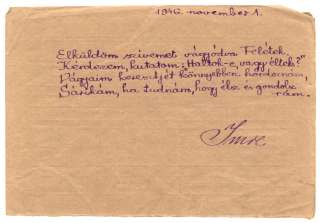 1946. november 1.
Elküldöm szivemet vágyódva Felétek.
Kérdezem, kutatom: "Haltok-e, vagy éltek?"
Vágyaim keresztjét könnyebben hordoznám,
Sárikám, ha tudnám, hogy élsz és gondolsz
rám.
Imre